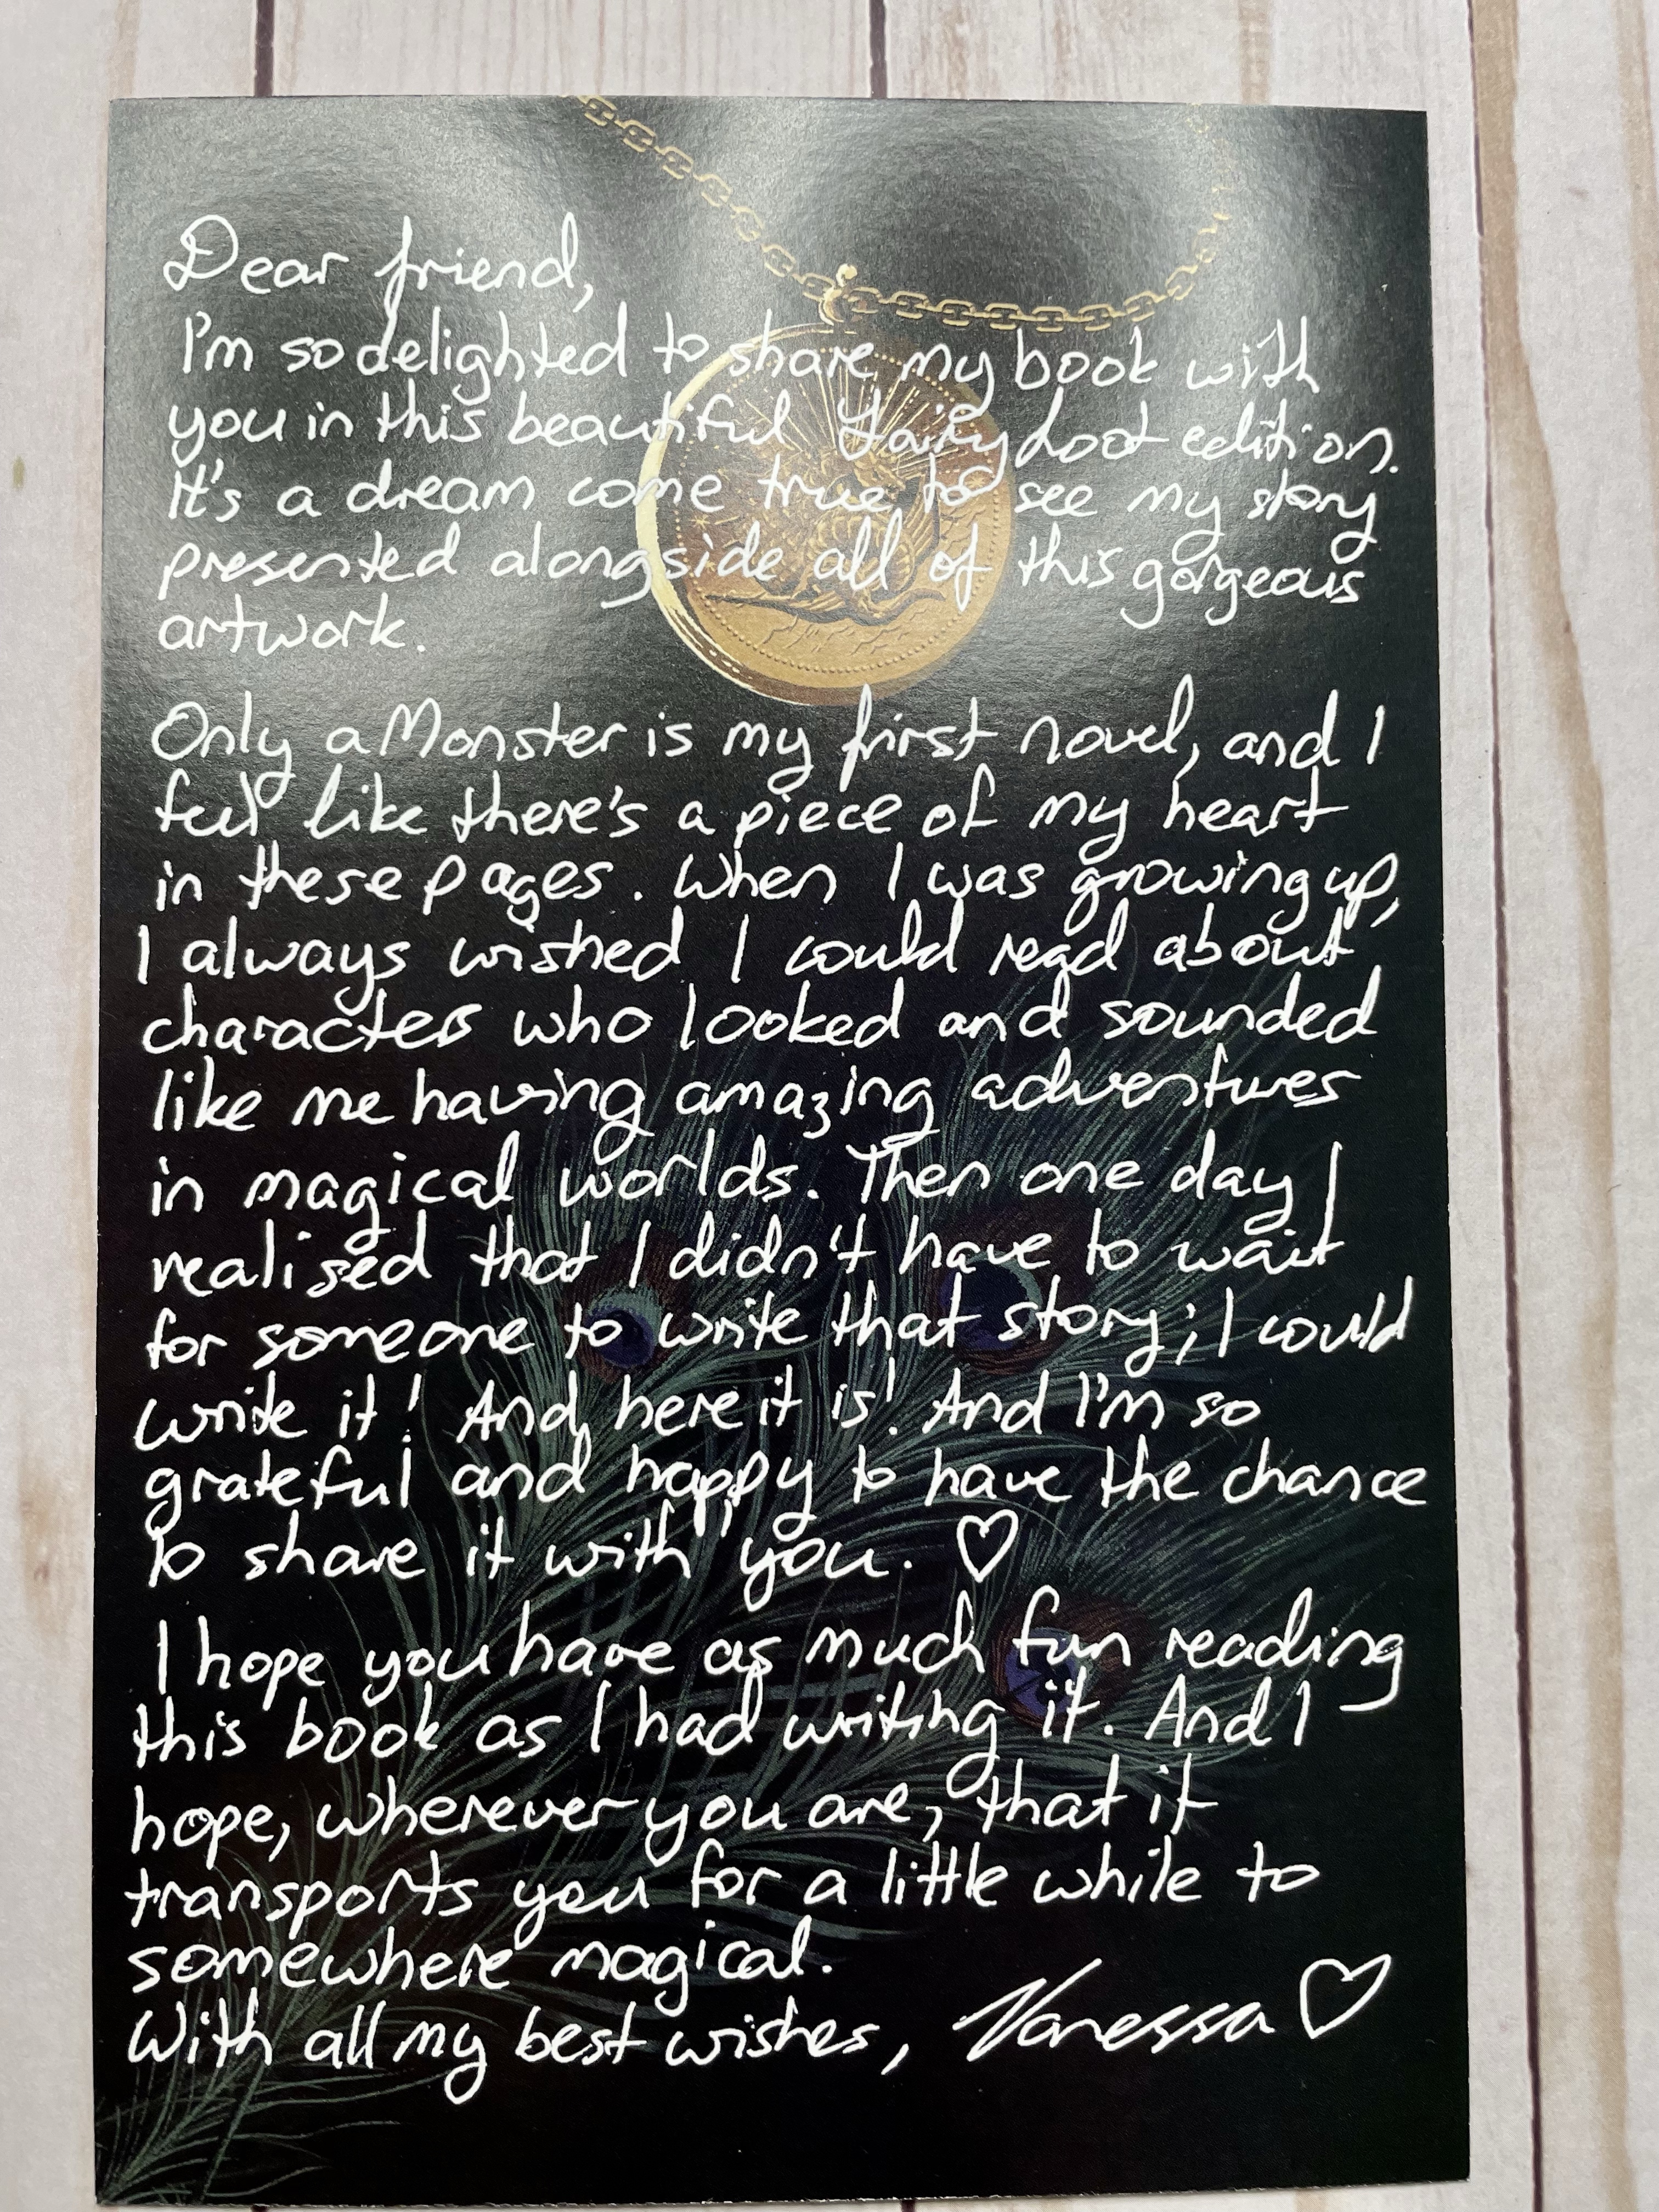 Dear friend,
I'm so delighted to share my book with
you in this beautiful FairyLoot edition.
It's a dream come true to see my story
presented alongside all of this gorgeous
artwork.
Only a Monster is my first novel, and I
feel like there's a piece of my heart
in these pages. When I was growing up,
I always wished I could read about
characters who looked and sounded
like me having amazing adventures
in magical worlds. Then one day I
realised that I didn't have to wait
for someone to write that story; I could
write it! And here it is! And I'm so
grateful and happy to have the chance
to share it with you. ♡
I hope you have as much fun reading
this book as I had writing it. And I
hope, wherever you are, that it
transports you for a little while to
somewhere magical.
With all my best wishes, Vanessa ♡